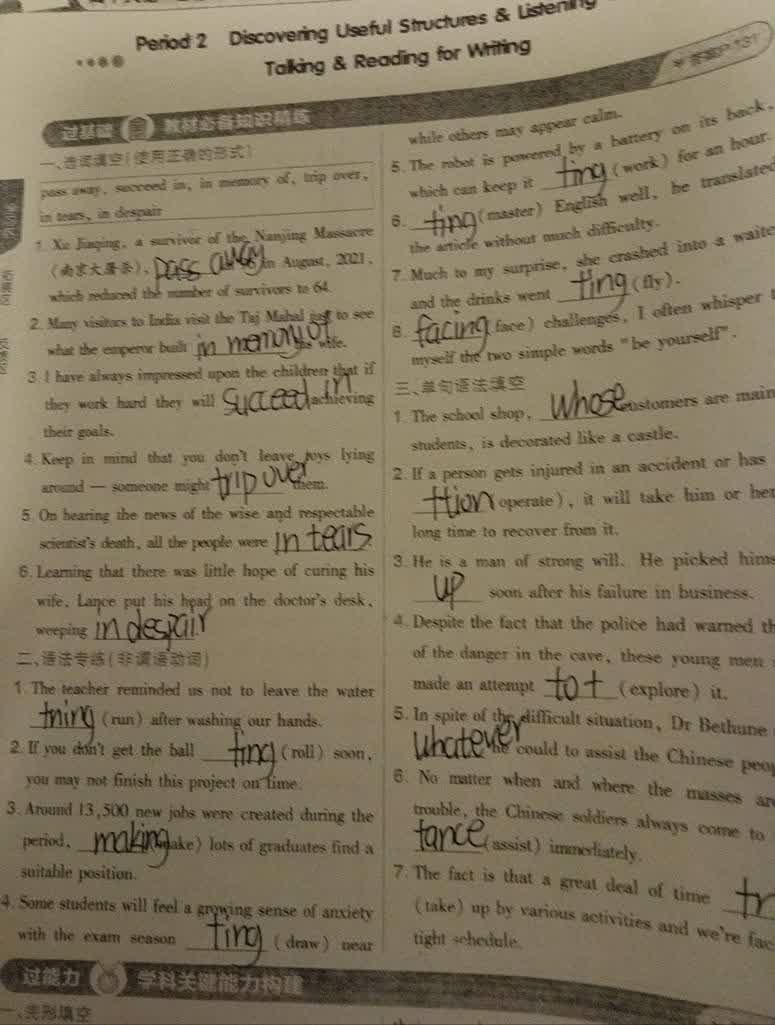 Period 2 Discovering Useful Structures & Listening
Talking & Reading for Writing
过基础 教材必备知识精练
一、选词填空(使用正确的形式)
pass away, succeed in, in memory of, trip over,
in tears, in despair
1. Xu Jiaqing, a survivor of the Nanjing Massacre
(南京大屠杀), pass away in August, 2021,
which reduced the number of survivors to 64.
2. Many visitors to India visit the Taj Mahal just to see
what the emperor built in memory of his wife.
3. I have always impressed upon the children that if
they work hard they will succeed in achieving
their goals.
4. Keep in mind that you don't leave toys lying
around — someone might trip over them.
5. On hearing the news of the wise and respectable
scientist's death, all the people were in tears.
6. Learning that there was little hope of curing his
wife, Lance put his head on the doctor's desk,
weeping in despair
二、语法专练(非谓语动词)
1. The teacher reminded us not to leave the water
tning (run) after washing our hands.
2. If you don't get the ball ting (roll) soon,
you may not finish this project on time.
3. Around 13,500 new jobs were created during the
period, making (make) lots of graduates find a
suitable position.
4. Some students will feel a growing sense of anxiety
with the exam season ting (draw) near
while others may appear calm.
5. The robot is powered by a battery on its back,
which can keep it ting (work) for an hour.
6. ting (master) English well, he translated
the article without much difficulty.
7. Much to my surprise, she crashed into a waite
and the drinks went ting (fly).
8. facing (face) challenges, I often whisper t
myself the two simple words "be yourself".
三、单句语法填空
1. The school shop, whose customers are main
students, is decorated like a castle.
2. If a person gets injured in an accident or has
ttion (operate), it will take him or her
long time to recover from it.
3. He is a man of strong will. He picked hims
up soon after his failure in business.
4. Despite the fact that the police had warned th
of the danger in the cave, these young men
made an attempt to t (explore) it.
5. In spite of the difficult situation, Dr Bethune
whatever he could to assist the Chinese peop
6. No matter when and where the masses are
trouble, the Chinese soldiers always come to
tance (assist) immediately.
7. The fact is that a great deal of time
(take) up by various activities and we're fac
tight schedule.
过能力 学科关键能力构建
一、完形填空